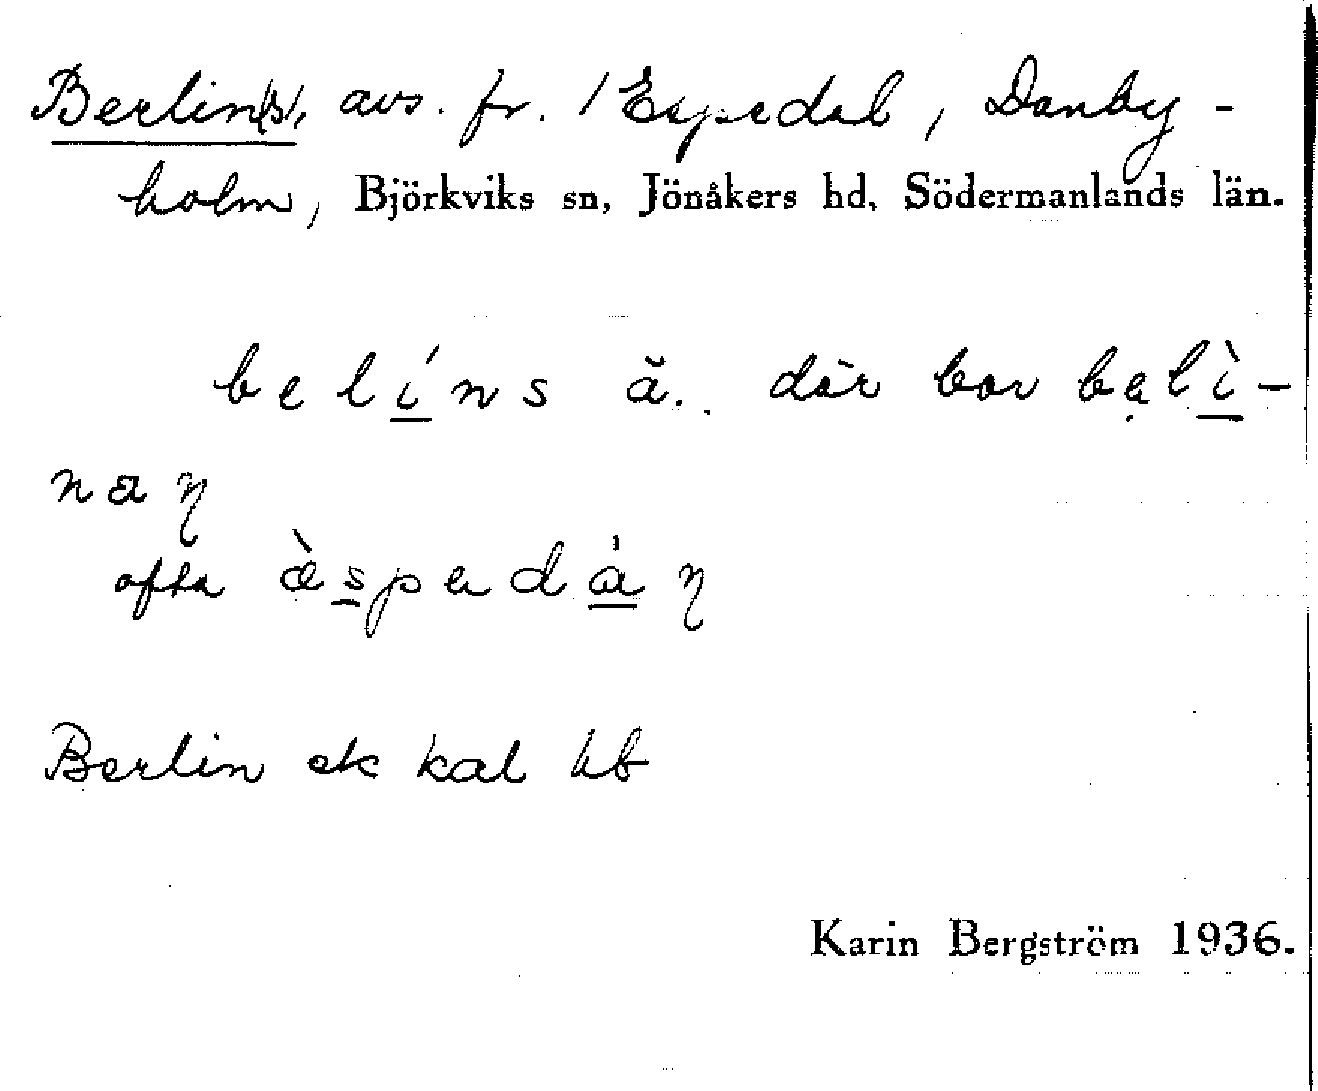 Berlin(s), avs. fr. 1 Espedal, Danby-
holm, Björkviks sn, Jönåkers hd, Södermanlands län.
belíns ä. där bor bẹlì-
naŋ
ofta æ̀spadáŋ
Berlin ek kal hb
Karin Bergström 1936.